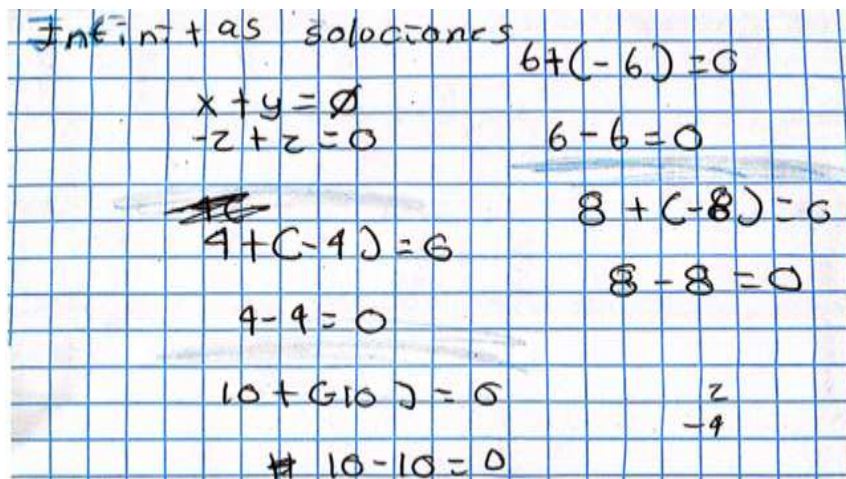 Infinitas soluciones
x + y = 0
-2 + 2 = 0
4 + (-4) = 0
4 - 4 = 0
10 + (-10) = 0
10 - 10 = 0
6 + (-6) = 0
6 - 6 = 0
8 + (-8) = 0
8 - 8 = 0
2
-4